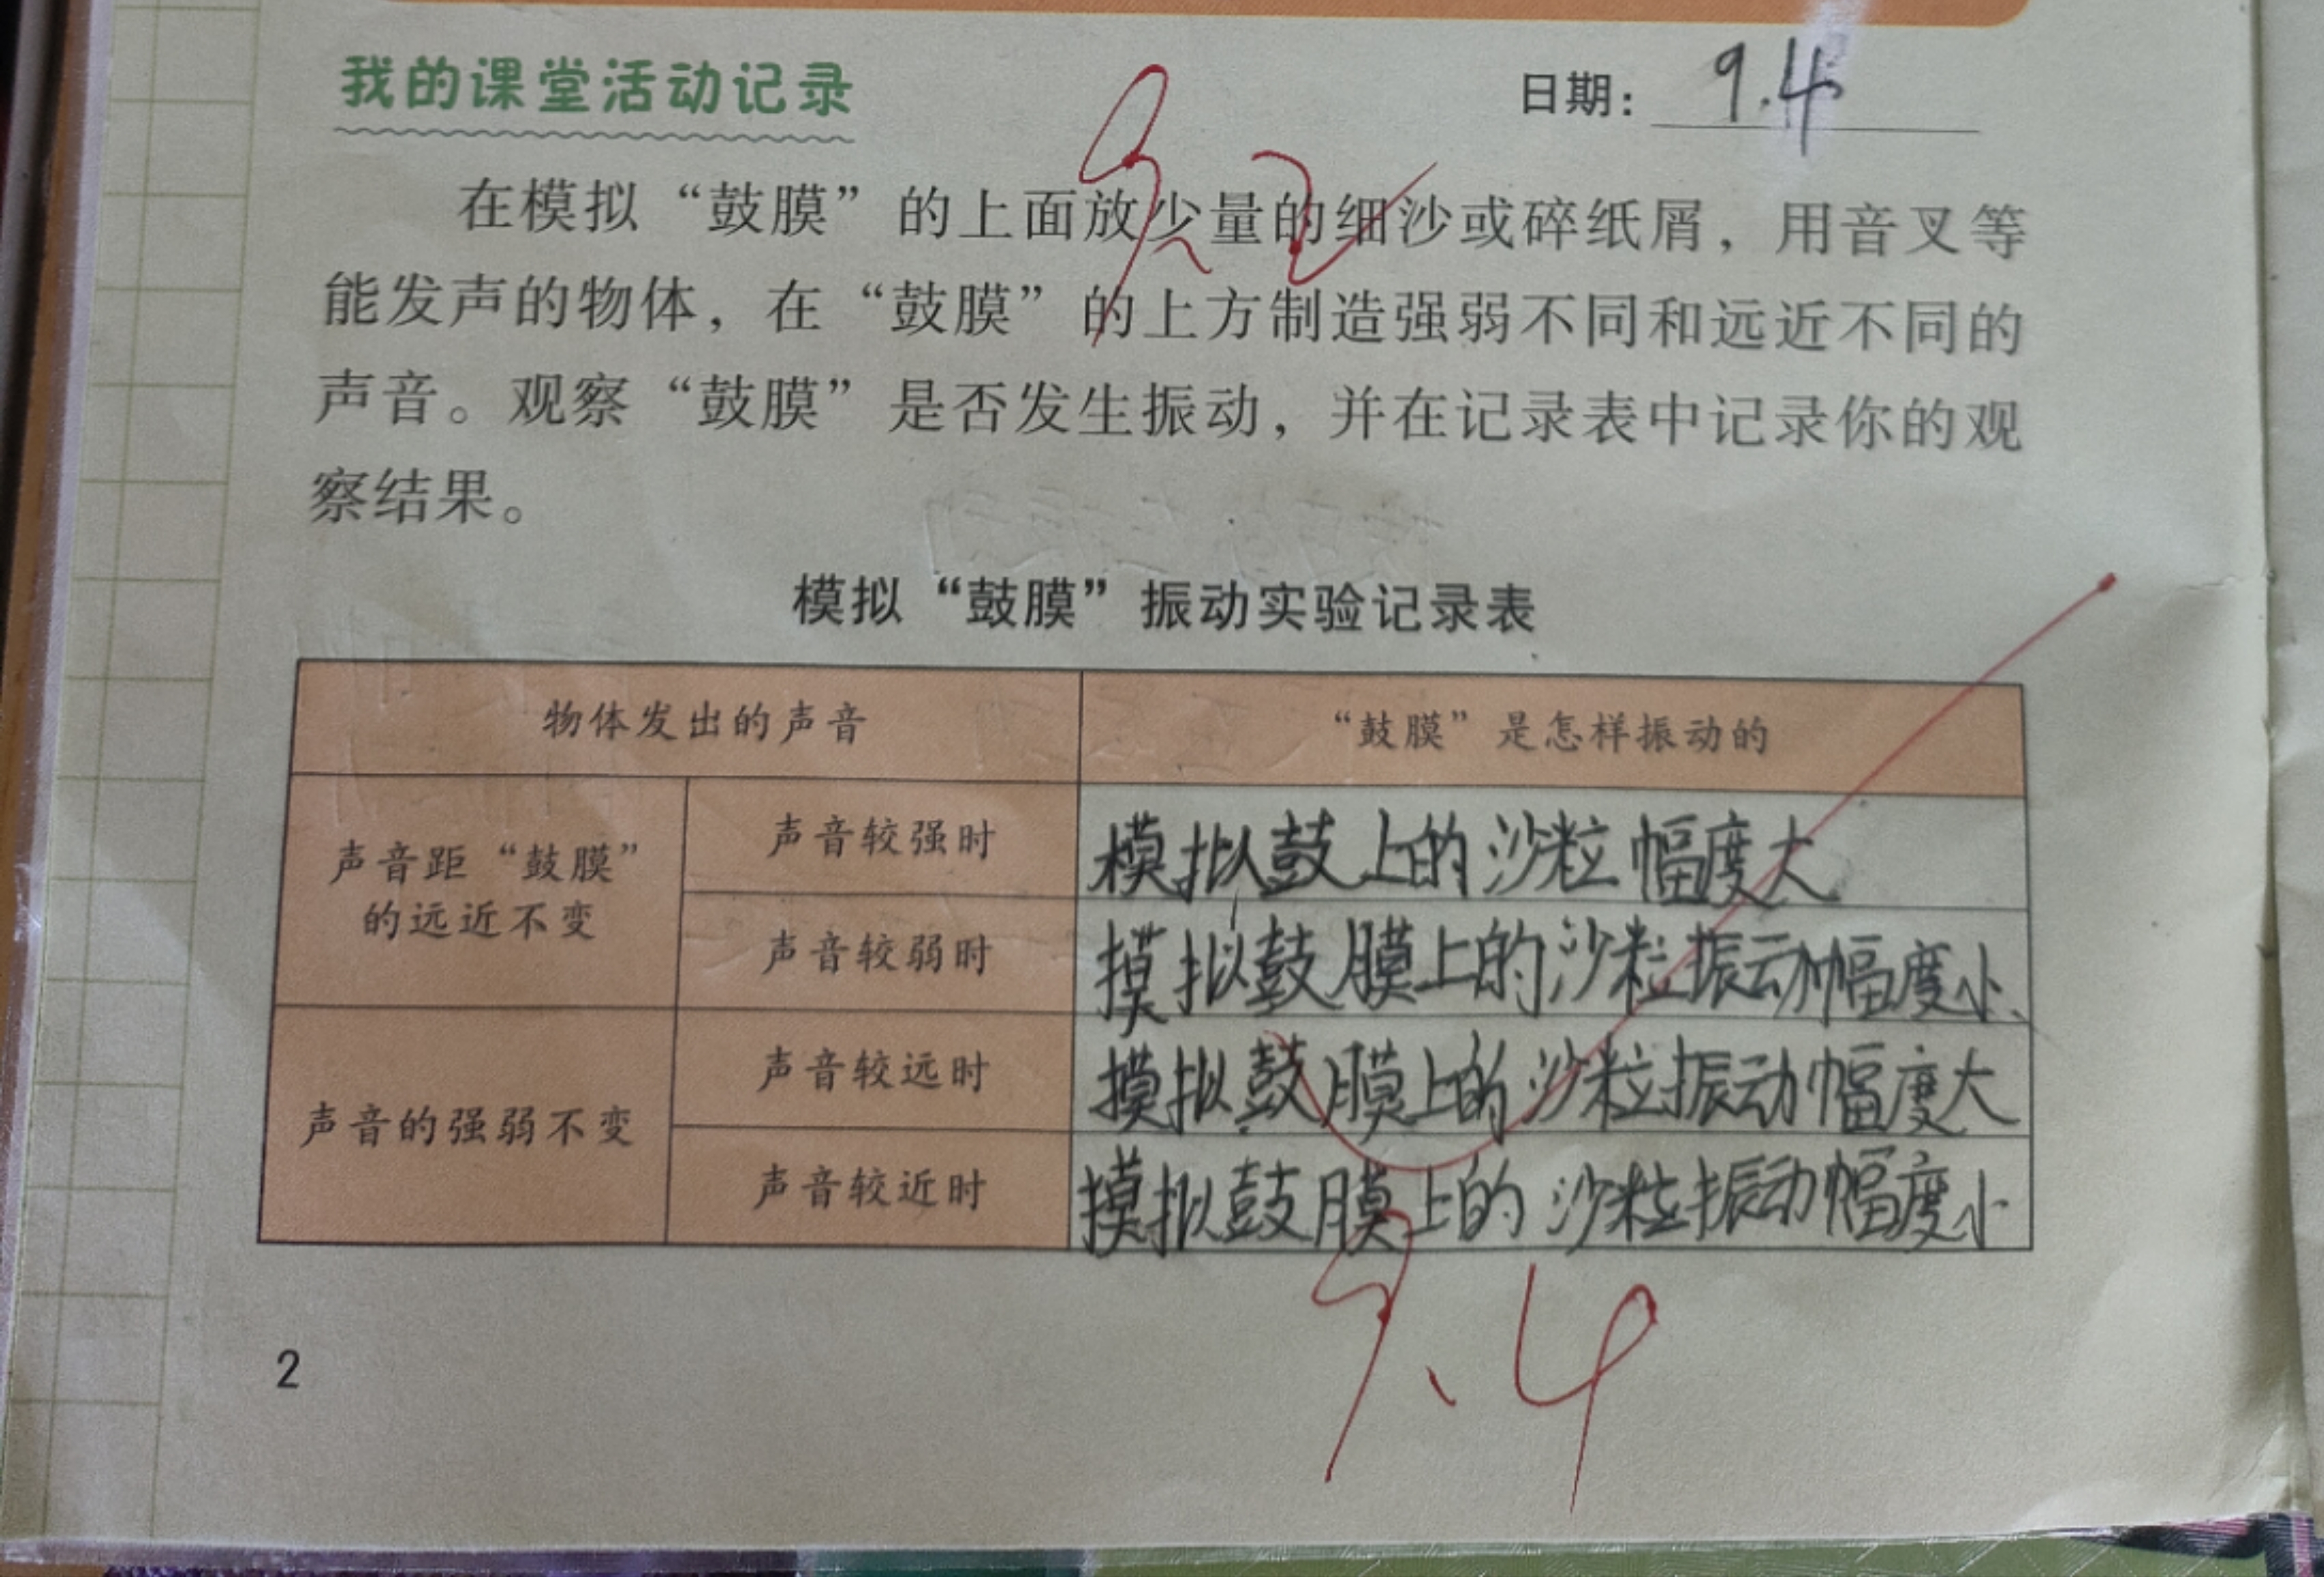 我的课堂活动记录
日期：9.4
在模拟“鼓膜”的上面放少量的细沙或碎纸屑，用音叉等
能发声的物体，在“鼓膜”的上方制造强弱不同和远近不同的
声音。观察“鼓膜”是否发生振动，并在记录表中记录你的观
察结果。
模拟“鼓膜”振动实验记录表
物体发出的声音 “鼓膜”是怎样振动的
声音距“鼓膜”
的远近不变
声音较强时 模拟鼓上的沙粒幅度大
声音较弱时 摸拟鼓膜上的沙粒振动幅度小
声音的强弱不变
声音较远时 摸拟鼓膜上的沙粒振动幅度大
声音较近时 摸拟鼓膜上的沙粒振动幅度小
9.4
2